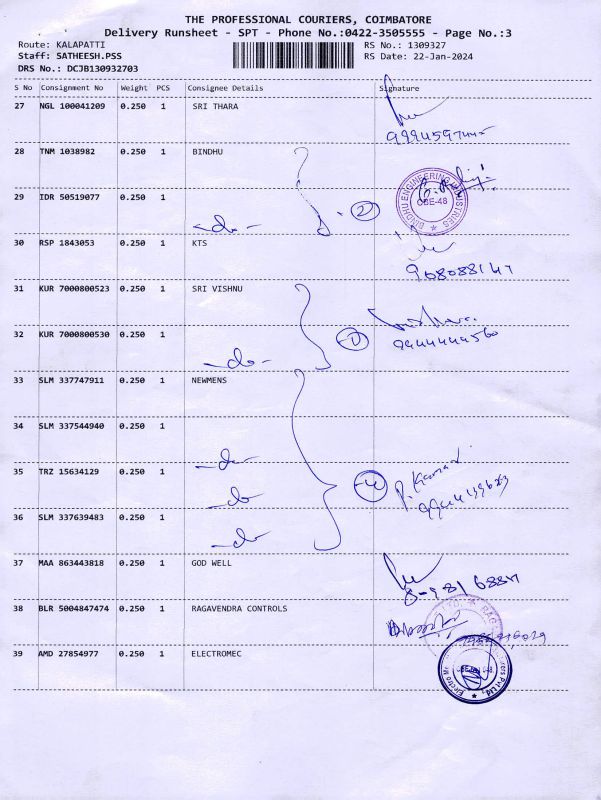 THE PROFESSIONAL COURIERS, COIMBATORE
Delivery Runsheet - SPT - Phone No.:0422-3505555 - Page No.:3
Route: KALAPATTI RS No.: 1309327
Staff: SATHEESH.PSS RS Date: 22-Jan-2024
DRS No.: DCJB130932703
S No Consignment No Weight PCS Consignee Details Signature
27 NGL 100041209 0.250 1 SRI THARA
28 TNM 1038982 0.250 1 BINDHU
BINDHU ENGINEERING INDUSTRIES
CBE-48
29 IDR 50519077 0.250 1
-do- 2
30 RSP 1843053 0.250 1 KTS
31 KUR 7000800523 0.250 1 SRI VISHNU
32 KUR 7000800530 0.250 1
9944444560
-do-
33 SLM 337747911 0.250 1 NEWMENS
34 SLM 337544940 0.250 1
-do-
35 TRZ 15634129 0.250 1
-do-
36 SLM 337639483 0.250 1
-do-
37 MAA 863443818 0.250 1 GOD WELL
38 BLR 5004847474 0.250 1 RAGAVENDRA CONTROLS
39 AMD 27854977 0.250 1 ELECTROMEC